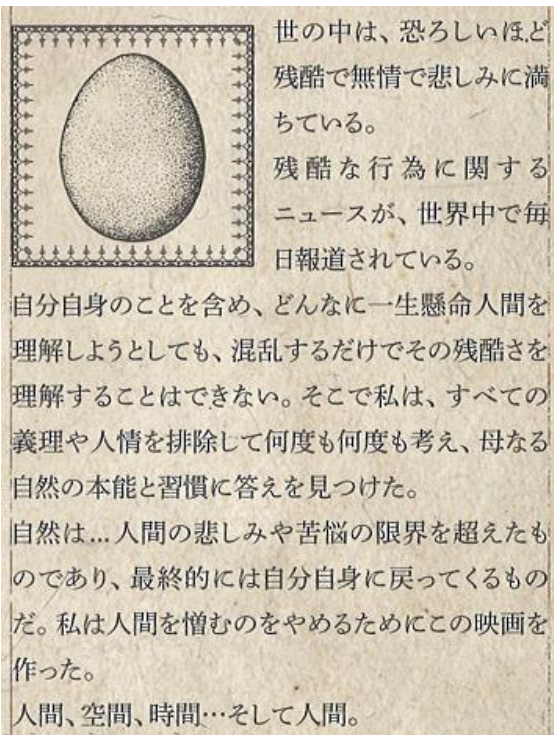 世の中は、恐ろしいほど
残酷で無情で悲しみに満
ちている。
残酷な行為に関する
ニュースが、世界中で毎
日報道されている。
自分自身のことを含め、どんなに一生懸命人間を
理解しようとしても、混乱するだけでその残酷さを
理解することはできない。そこで私は、すべての
義理や人情を排除して何度も何度も考え、母なる
自然の本能と習慣に答えを見つけた。
自然は…人間の悲しみや苦悩の限界を超えたも
のであり、最終的には自分自身に戻ってくるもの
だ。私は人間を憎むのをやめるためにこの映画を
作った。
人間、空間、時間…そして人間。